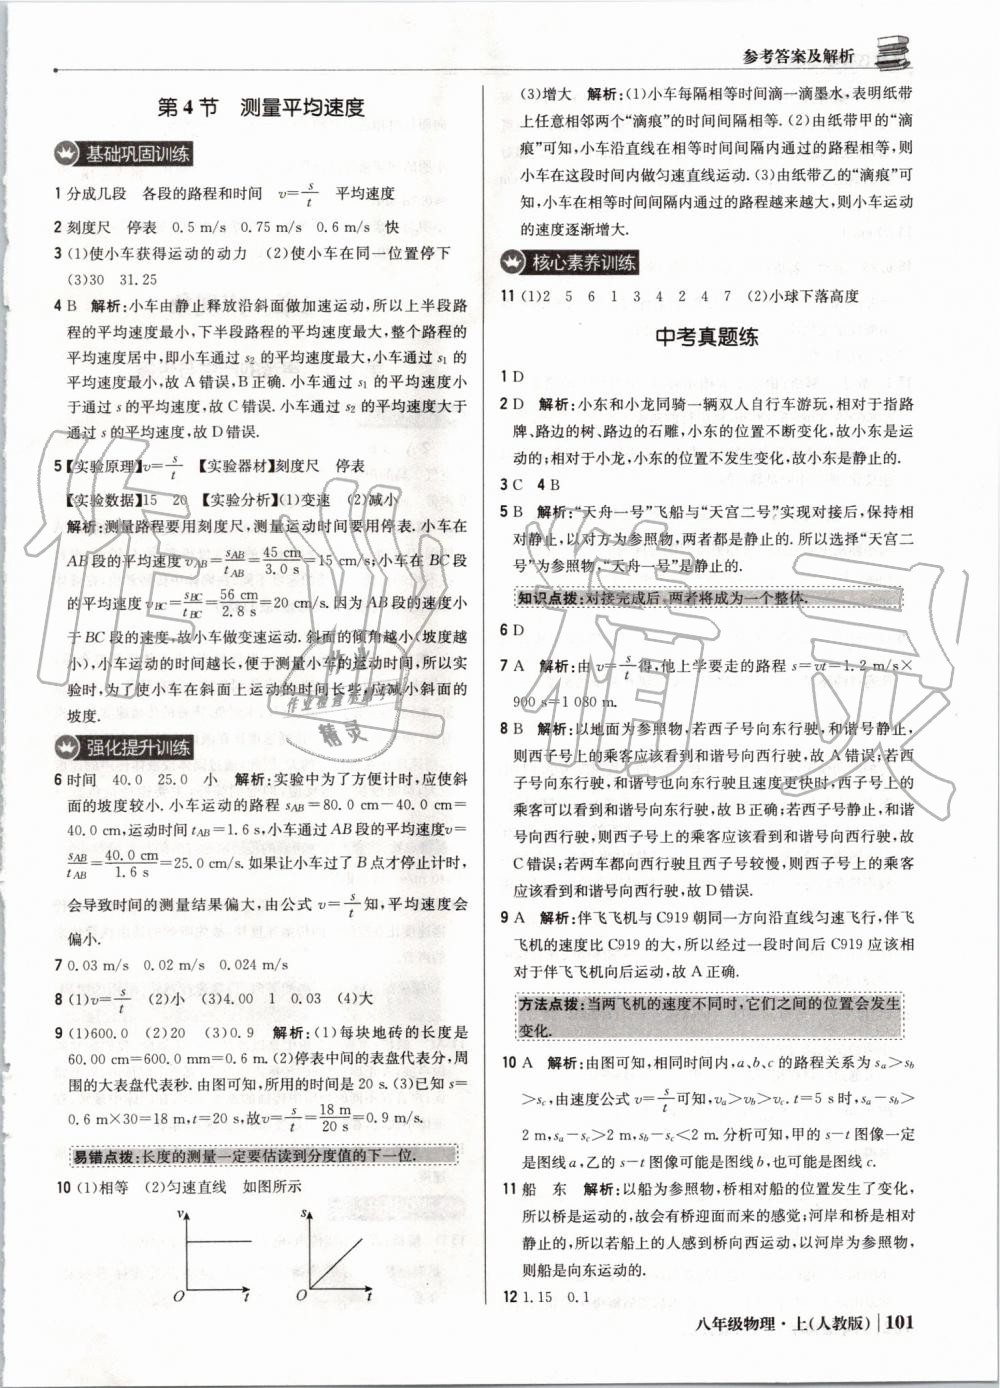 参考答案及解析
第4节 测量平均速度
基础巩固训练
1 分成几段 各段的路程和时间 v=s/t 平均速度
2 刻度尺 停表 0.5 m/s 0.75 m/s 0.6 m/s 快
3 (1)使小车获得运动的动力 (2)使小车在同一位置停下
(3)30 31.25
4 B 解析:小车由静止释放沿斜面做加速运动,所以上半段路
程的平均速度最小,下半段路程的平均速度最大,整个路程的
平均速度居中,即小车通过 s₂ 的平均速度最大,小车通过 s₁ 的
平均速度最小,故 A 错误,B 正确. 小车通过 s₁ 的平均速度小
于通过 s 的平均速度,故 C 错误. 小车通过 s₂ 的平均速度大于
通过 s 的平均速度,故 D 错误.
5【实验原理】v=s/t 【实验器材】刻度尺 停表
【实验数据】15 20 【实验分析】(1)变速 (2)减小
解析:测量路程要用刻度尺,测量运动时间要用停表. 小车在
AB 段的平均速度 v_AB=s_AB/t_AB=45 cm/3.0 s=15 cm/s;小车在 BC 段
的平均速度 v_BC=s_BC/t_BC=56 cm/2.8 s=20 cm/s. 因为 AB 段的速度小
于 BC 段的速度,故小车做变速运动. 斜面的倾角越小(坡度越
小),小车运动的时间越长,便于测量小车的运动时间,所以实
验时,为了使小车在斜面上运动的时间长些,应减小斜面的
坡度.
强化提升训练
6 时间 40.0 25.0 小 解析:实验中为了方便计时,应使斜
面的坡度较小. 小车运动的路程 s_AB=80.0 cm-40.0 cm=
40.0 cm,运动时间 t_AB=1.6 s,小车通过 AB 段的平均速度v=
s_AB/t_AB=40.0 cm/1.6 s=25.0 cm/s. 如果让小车过了 B 点才停止计时,
会导致时间的测量结果偏大,由公式 v=s/t知,平均速度会
偏小.
7 0.03 m/s 0.02 m/s 0.024 m/s
8 (1)v=s/t (2)小 (3)4.00 1 0.03 (4)大
9 (1)600.0 (2)20 (3)0.9 解析:(1)每块地砖的长度是
60.00 cm=600.0 mm=0.6 m. (2)停表中间的表盘代表分,周
围的大表盘代表秒. 由图可知,所用的时间是 20 s. (3)已知 s=
0.6 m×30=18 m,t=20 s,故v=s/t=18 m/20 s=0.9 m/s.
易错点拨:长度的测量一定要估读到分度值的下一位.
10 (1)相等 (2)匀速直线 如图所示
v
O
t
s
O
t
(3)增大 解析:(1)小车每隔相等时间滴一滴墨水,表明纸带
上任意相邻两个“滴痕”的时间间隔相等. (2)由纸带甲的“滴
痕”可知,小车沿直线在相等时间间隔内通过的路程相等,则
小车在这段时间内做匀速直线运动. (3)由纸带乙的“滴痕”可
知,小车在相等时间间隔内通过的路程越来越大,则小车运动
的速度逐渐增大.
核心素养训练
11 (1)2 5 6 1 3 4 2 4 7 (2)小球下落高度
中考真题练
1 D
2 D 解析:小东和小龙同骑一辆双人自行车游玩,相对于指路
牌、路边的树、路边的石雕,小东的位置不断变化,故小东是运
动的;相对于小龙,小东的位置不发生变化,故小东是静止的.
3 C 4 B
5 B 解析:“天舟一号”飞船与“天宫二号”实现对接后,保持相
对静止,以对方为参照物,两者都是静止的. 所以选择“天宫二
号”为参照物,“天舟一号”是静止的.
知识点拨:对接完成后,两者将成为一个整体.
6 D
7 A 解析:由 v=s/t得,他上学要走的路程 s=vt=1.2 m/s×
900 s=1 080 m.
8 B 解析:以地面为参照物,若西子号向东行驶,和谐号静止,
则西子号上的乘客应该看到和谐号向西行驶,故 A 错误;若西
子号向东行驶,和谐号也向东行驶且速度更快,西子号上的
乘客可以看到和谐号向东行驶,故 B 正确;若西子号静止,和谐
号向西行驶,则西子号上的乘客应该看到和谐号向西行驶,故
C 错误;若两车都向西行驶且西子号较慢,则西子号上的乘客
应该看到和谐号向西行驶,故 D 错误.
9 A 解析:伴飞飞机与 C919 朝同一方向沿直线匀速飞行,伴飞
飞机的速度比 C919 的大,所以经过一段时间后 C919 应该相
对于伴飞飞机向后运动,故 A 正确.
方法点拨:当两飞机的速度不同时,它们之间的位置会发生
变化.
10 A 解析:由图可知,相同时间内,a、b、c 的路程关系为 s_a>s_b
>s_c,由速度公式 v=s/t可知,v_a>v_b>v_c. t=5 s 时,s_a-s_b>
2 m,s_a-s_c>2 m,s_b-s_c<2 m. 分析可知,甲的 s-t 图像一定
是图线 a,乙的 s-t 图像可能是图线 b,也可能是图线 c.
11 船 东 解析:以船为参照物,桥相对船的位置发生了变化,
所以桥是运动的,故会有桥迎面而来的感觉;河岸和桥是相对
静止的,所以若船上的人感到桥向西运动,以河岸为参照物,
则船是向东运动的.
12 1.15 0.1
八年级物理·上(人教版) 101
作业精灵
作业
作业检查来精灵
精灵